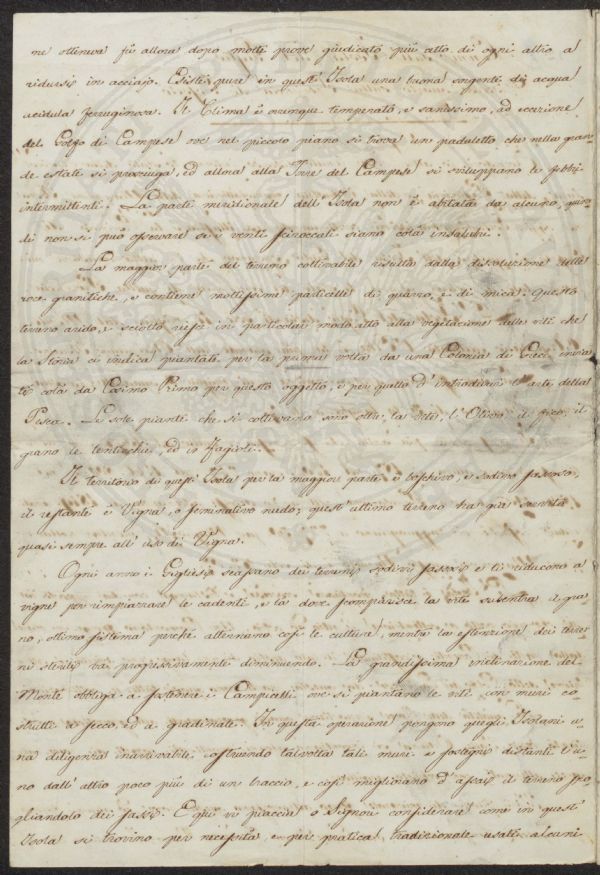 ne otteneva fù allora dopo molte prove giudicato più atto di ogni altro a
ridursi in acciajo. Esiste pure in quest' Isola una buona sorgente di acqua
acidula ferruginosa. Il Clima è ovunque temperato, e sanissimo, ad eccezione
del Golfo di Campese ove nel piccolo piano si trova un paduletto, che nella gran-
de estate si prosciuga, ed allora alla Torre del Campese si sviluppano le febbri
intermittenti. La parte meridionale dell' Isola non è abitata da alcuno, quin-
di non si può osservare se i venti scirocali siano colà insalubri.
La maggior parte del terreno coltivabile risulta dalla dissoluzione delle
roce granitiche, e contiene moltissime particelle di quarzo, e di mica. Questo
terreno arido, e sciolto in particolar modo atto alla vegetazione delle viti che
la Storia ci indica piantate per la prima volta da una Colonia di Greci invia
ti colà da Cosimo Primo per questo oggetto, e per quello d' introdurvi l' arte della
Pesca. Le sole piante che si coltivano sono oltre la vite, l' Olivo, il fico, il
grano le lenticchie, ed i fagioli.
Il territorio di quest' Isola per la maggior parte è boschivo, e sodivo sassoso,
il restante è Vigna, o seminativo nudo; quest' ultimo terreno ha già servito
quasi sempre all' uso di Vigna.
Ogni anno i Gigliesi scassano dei terreni sodivi sassosi e li riducono a
vigne per rimpiazzare le cadenti, e la dove scomparisce la vite subentra il gra-
no, ottimo sistema perchè alternano così le culture, mentre la estenzione dei terre
ni sterili và progressivamente diminuendo. La grandissima inclinazione del
Monte obbliga a sostenere i Campicelli ove si piantano le viti con muri co-
strutti a secco, ed a gradinate. In questa operazione pongono quegli Isolani u-
na diligenza inarrivabile, costruendo talvolta tali muri a sostegni distanti l' u-
no dall' altro poco più di un braccio, e così migliorano d' assai il terreno spo
gliandolo dei sassi. E qui vi piaccia o Signori considerare come in quest'
Isola si trovino per necessità, e per pratica tradizionale usati alcuni